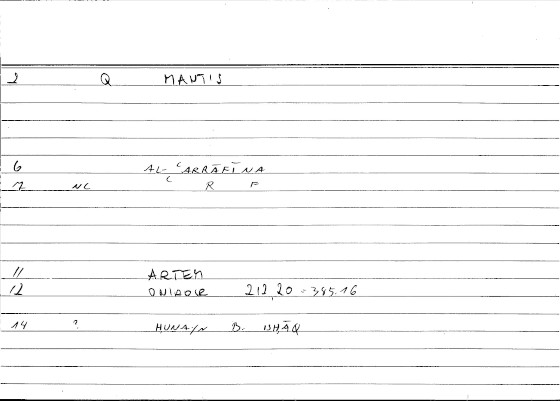 2 Q MANTIS
6 AL-ʿARRĀFĪNA
7 NC ʿ R F
11 ARTEM
12 ONIAOCR 212,20 = 385.16
14 ? ḤUNAYN B. ISḤĀQ